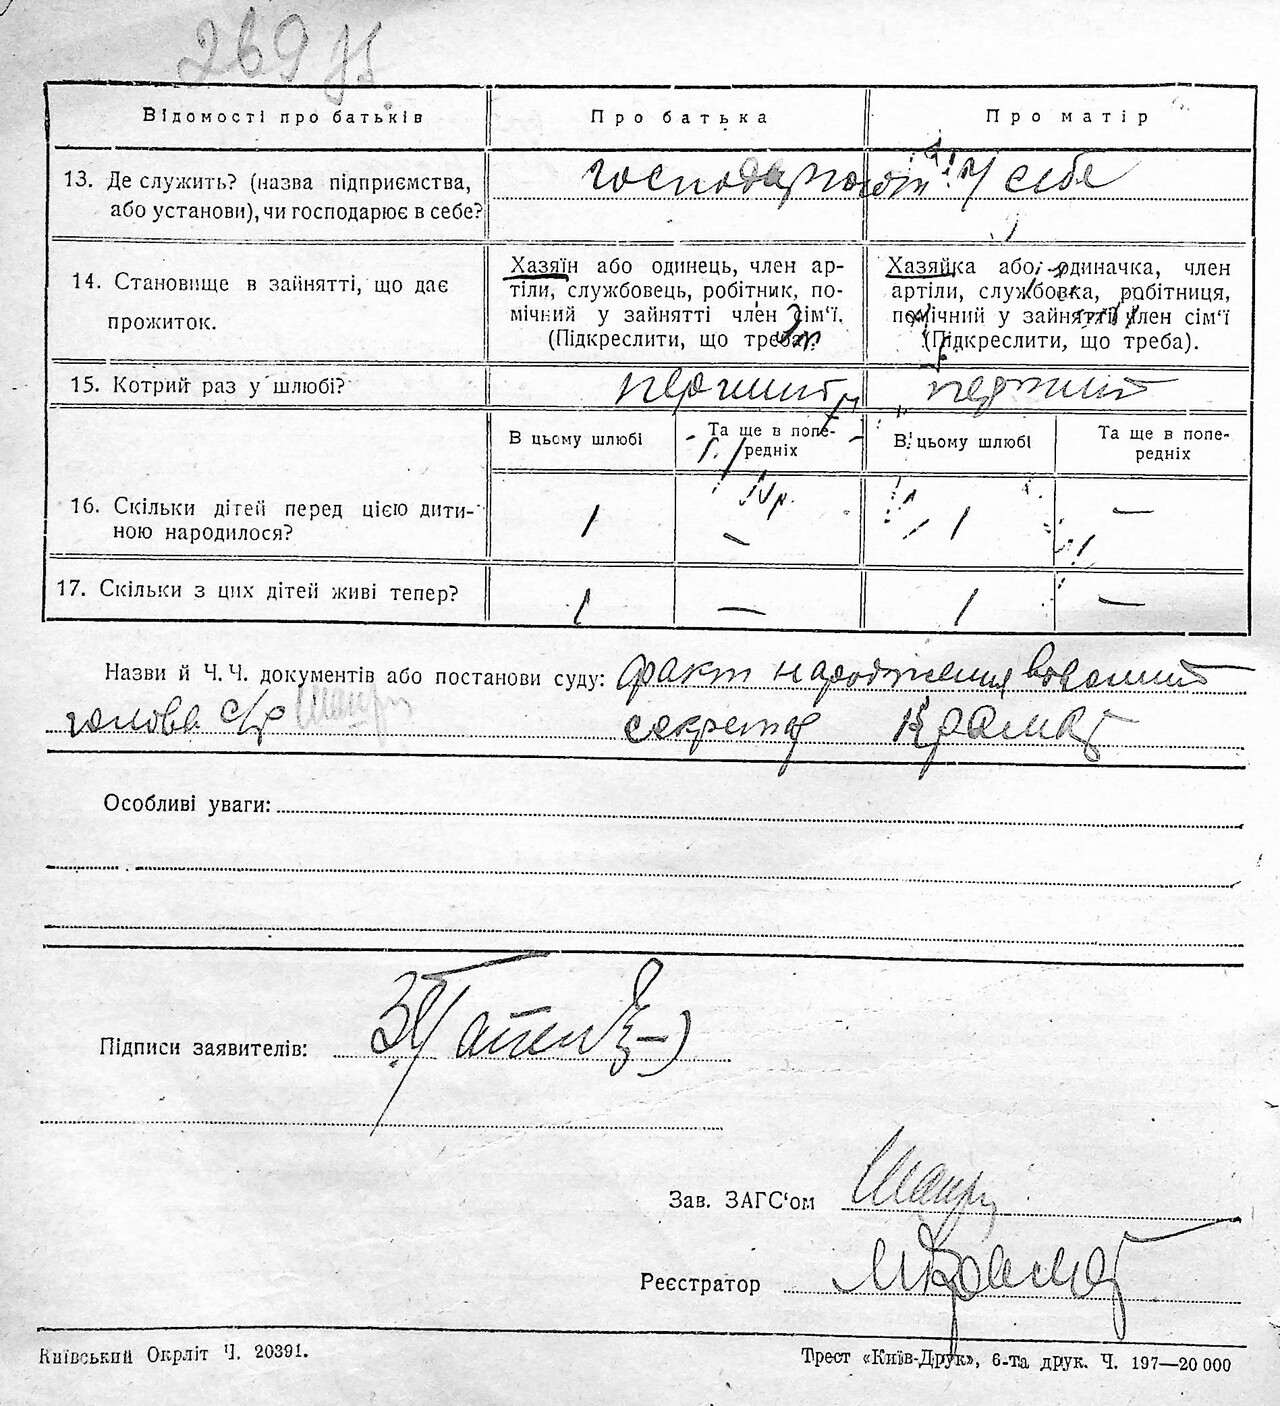 269
Відомості про батьків Про батька Про матір
13. Де служить? (назва підприємства, або установи), чи господарює в себе? господарюють у себе
14. Становище в зайнятті, що дає прожиток.
Хазяїн або одинець, член артілі, службовець, робітник, помічний у зайнятті член сім'ї. (Підкреслити, що треба).
Хазяйка або одиначка, член артілі, службовка, робітниця, помічний у зайнятті член сім'ї (Підкреслити, що треба).
15. Котрий раз у шлюбі? перший перший
В цьому шлюбі Та ще в попередніх В цьому шлюбі Та ще в попередніх
16. Скільки дітей перед цією дитиною народилося? 1 — 1 —
17. Скільки з цих дітей живі тепер? 1 — 1 —
Назви й Ч. Ч. документів або постанови суду: факт народження відомий
голова с/р секретар
Особливі уваги:
Підписи заявителів:
Зав. ЗАГС'ом
Реєстратор
Київський Окрліт Ч. 20391. Трест «Київ-Друк», 6-та друк. Ч. 197—20 000